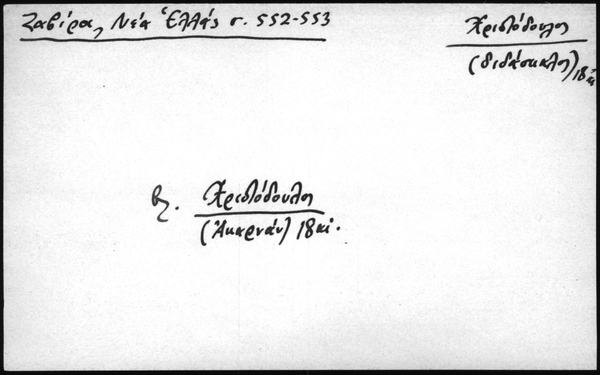 Ζαβίρα, Νέα Ἑλλάς σ. 552-553
Χριστόδουλος
(διδάσκαλος) 18 αἰ
βλ. Χριστόδουλος
(Ἀκαρνάν) 18 αἰ.